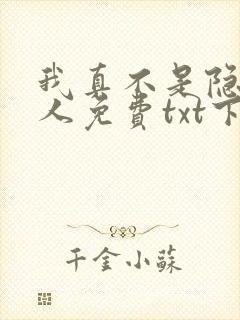 我真不是隐
人免费txt下
千金小蘇